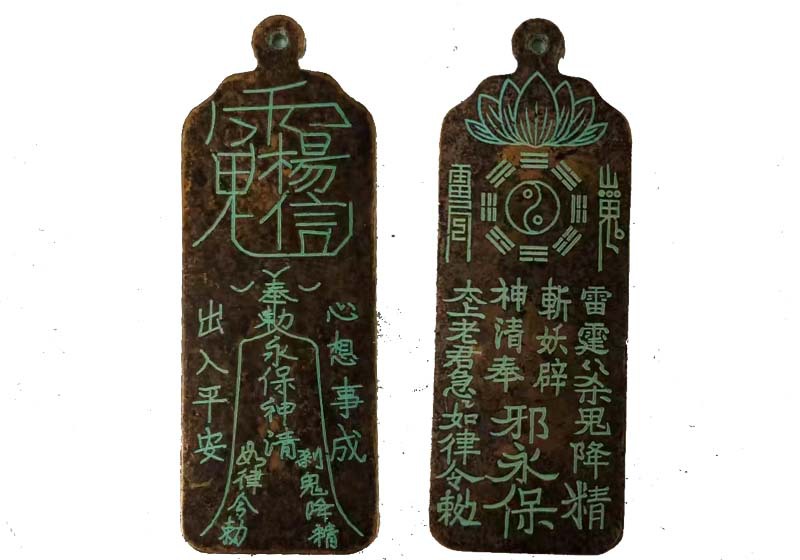 楊信
心想事成
奉勅永保神清
出入平安
剎鬼降精
如律令勅
雷霆〻杀鬼降精
斬妖辟邪永保
神清奉
太上老君急〻如律令勅